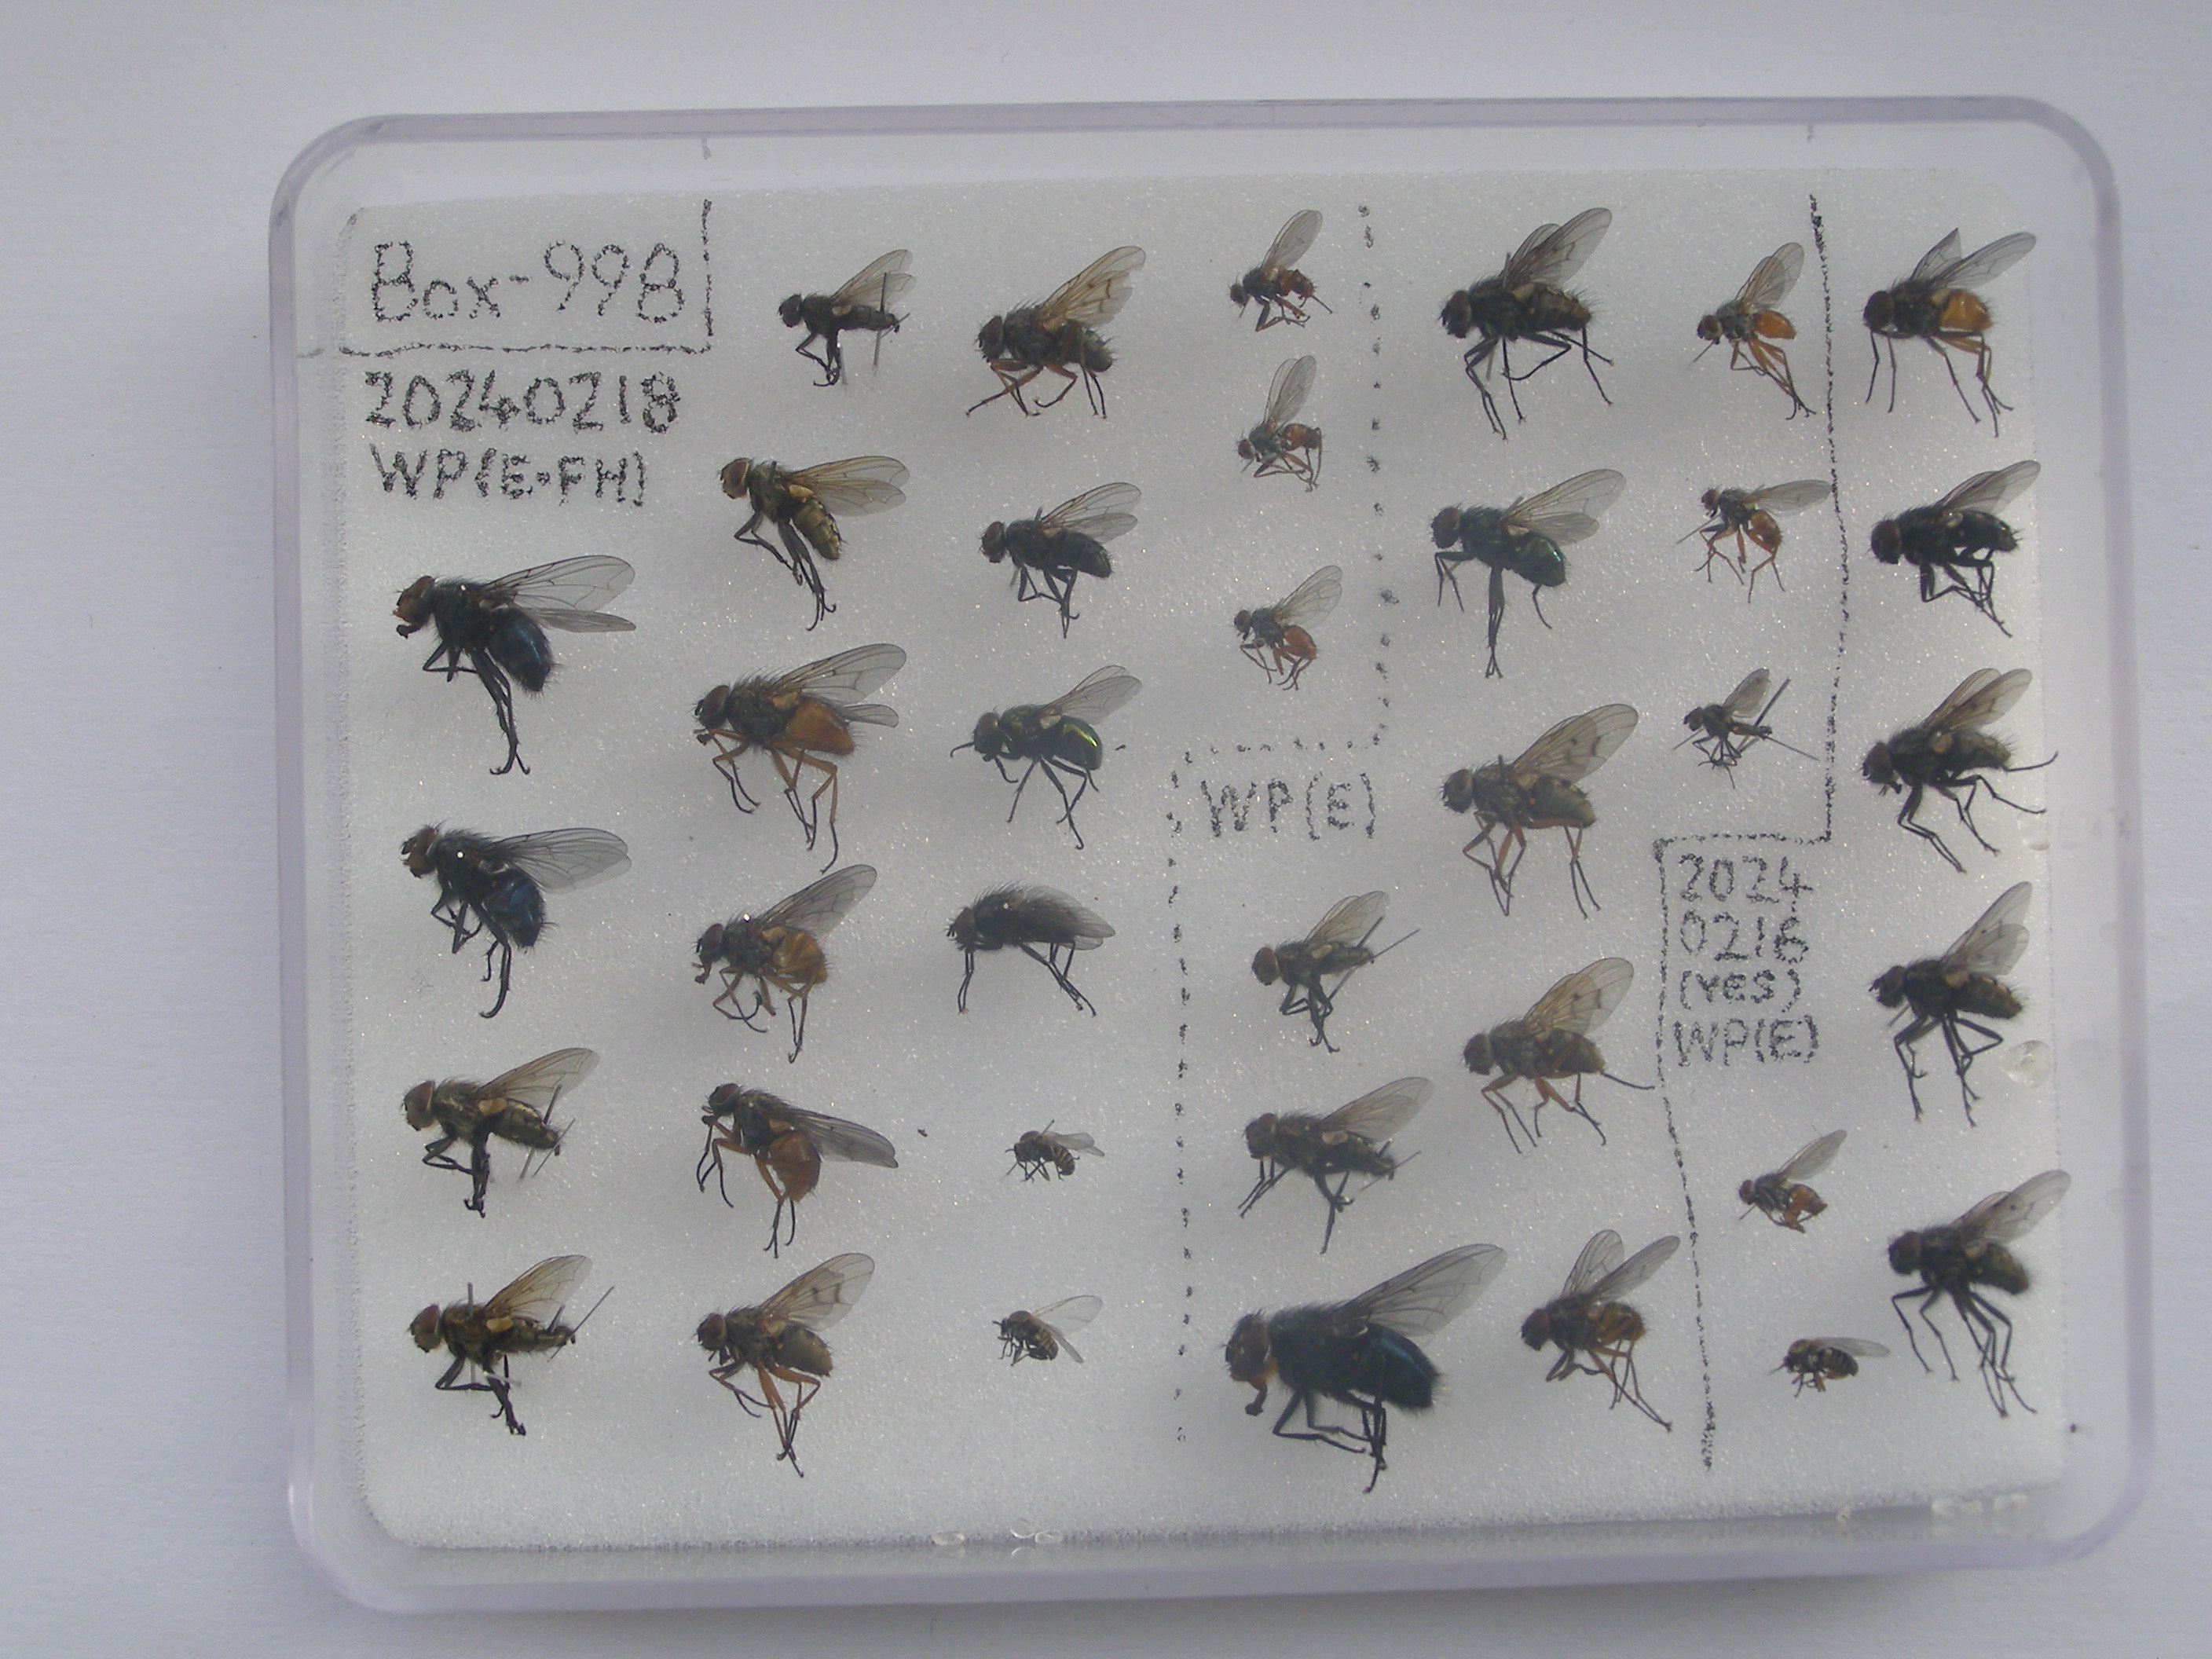 Box-998
20240218
WP(E·FH)
WP(E)
2024
0216
(YES)
WP(E)